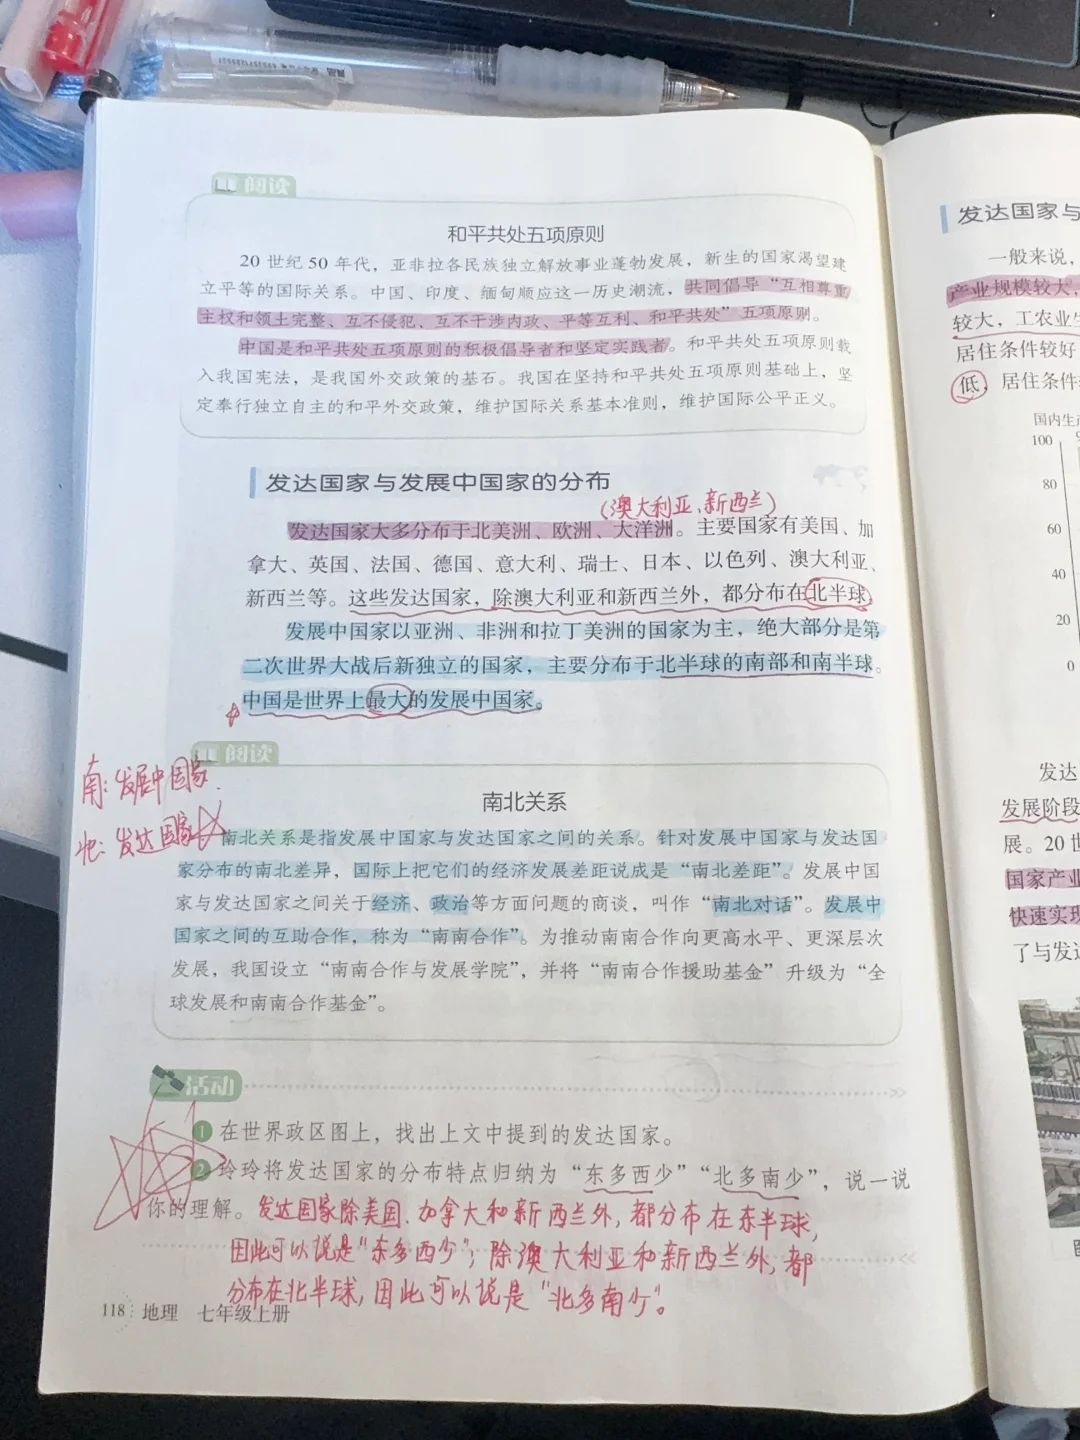 阅读
和平共处五项原则
20 世纪 50 年代，亚非拉各民族独立解放事业蓬勃发展，新生的国家渴望建
立平等的国际关系。中国、印度、缅甸顺应这一历史潮流，共同倡导“互相尊重
主权和领土完整、互不侵犯、互不干涉内政、平等互利、和平共处”五项原则。
中国是和平共处五项原则的积极倡导者和坚定实践者。和平共处五项原则载
入我国宪法，是我国外交政策的基石。我国在坚持和平共处五项原则基础上，坚
定奉行独立自主的和平外交政策，维护国际关系基本准则，维护国际公平正义。
发达国家与发展中国家的分布
（澳大利亚、新西兰）
发达国家大多分布于北美洲、欧洲、大洋洲。主要国家有美国、加
拿大、英国、法国、德国、意大利、瑞士、日本、以色列、澳大利亚、
新西兰等。这些发达国家，除澳大利亚和新西兰外，都分布在北半球。
发展中国家以亚洲、非洲和拉丁美洲的国家为主，绝大部分是第
二次世界大战后新独立的国家，主要分布于北半球的南部和南半球。
中国是世界上最大的发展中国家。
阅读
南：发展中国家
北：发达国家
南北关系
南北关系是指发展中国家与发达国家之间的关系。针对发展中国家与发达国
家分布的南北差异，国际上把它们的经济发展差距说成是“南北差距”。发展中国
家与发达国家之间关于经济、政治等方面问题的商谈，叫作“南北对话”。发展中
国家之间的互助合作，称为“南南合作”。为推动南南合作向更高水平、更深层次
发展，我国设立“南南合作与发展学院”，并将“南南合作援助基金”升级为“全
球发展和南南合作基金”。
活动
1 在世界政区图上，找出上文中提到的发达国家。
2 玲玲将发达国家的分布特点归纳为“东多西少”“北多南少”，说一说
你的理解。发达国家除美国、加拿大和新西兰外，都分布在东半球，
因此可以说是“东多西少”；除澳大利亚和新西兰外，都
分布在北半球，因此可以说是“北多南少”。
118 地理 七年级上册
发达国家与
一般来说，
产业规模较大，
较大，工农业生
居住条件较好
低，居住条件
国内生产
100
80
60
40
20
0
发达
发展阶段
展。20 世
国家产业
快速实现
了与发达